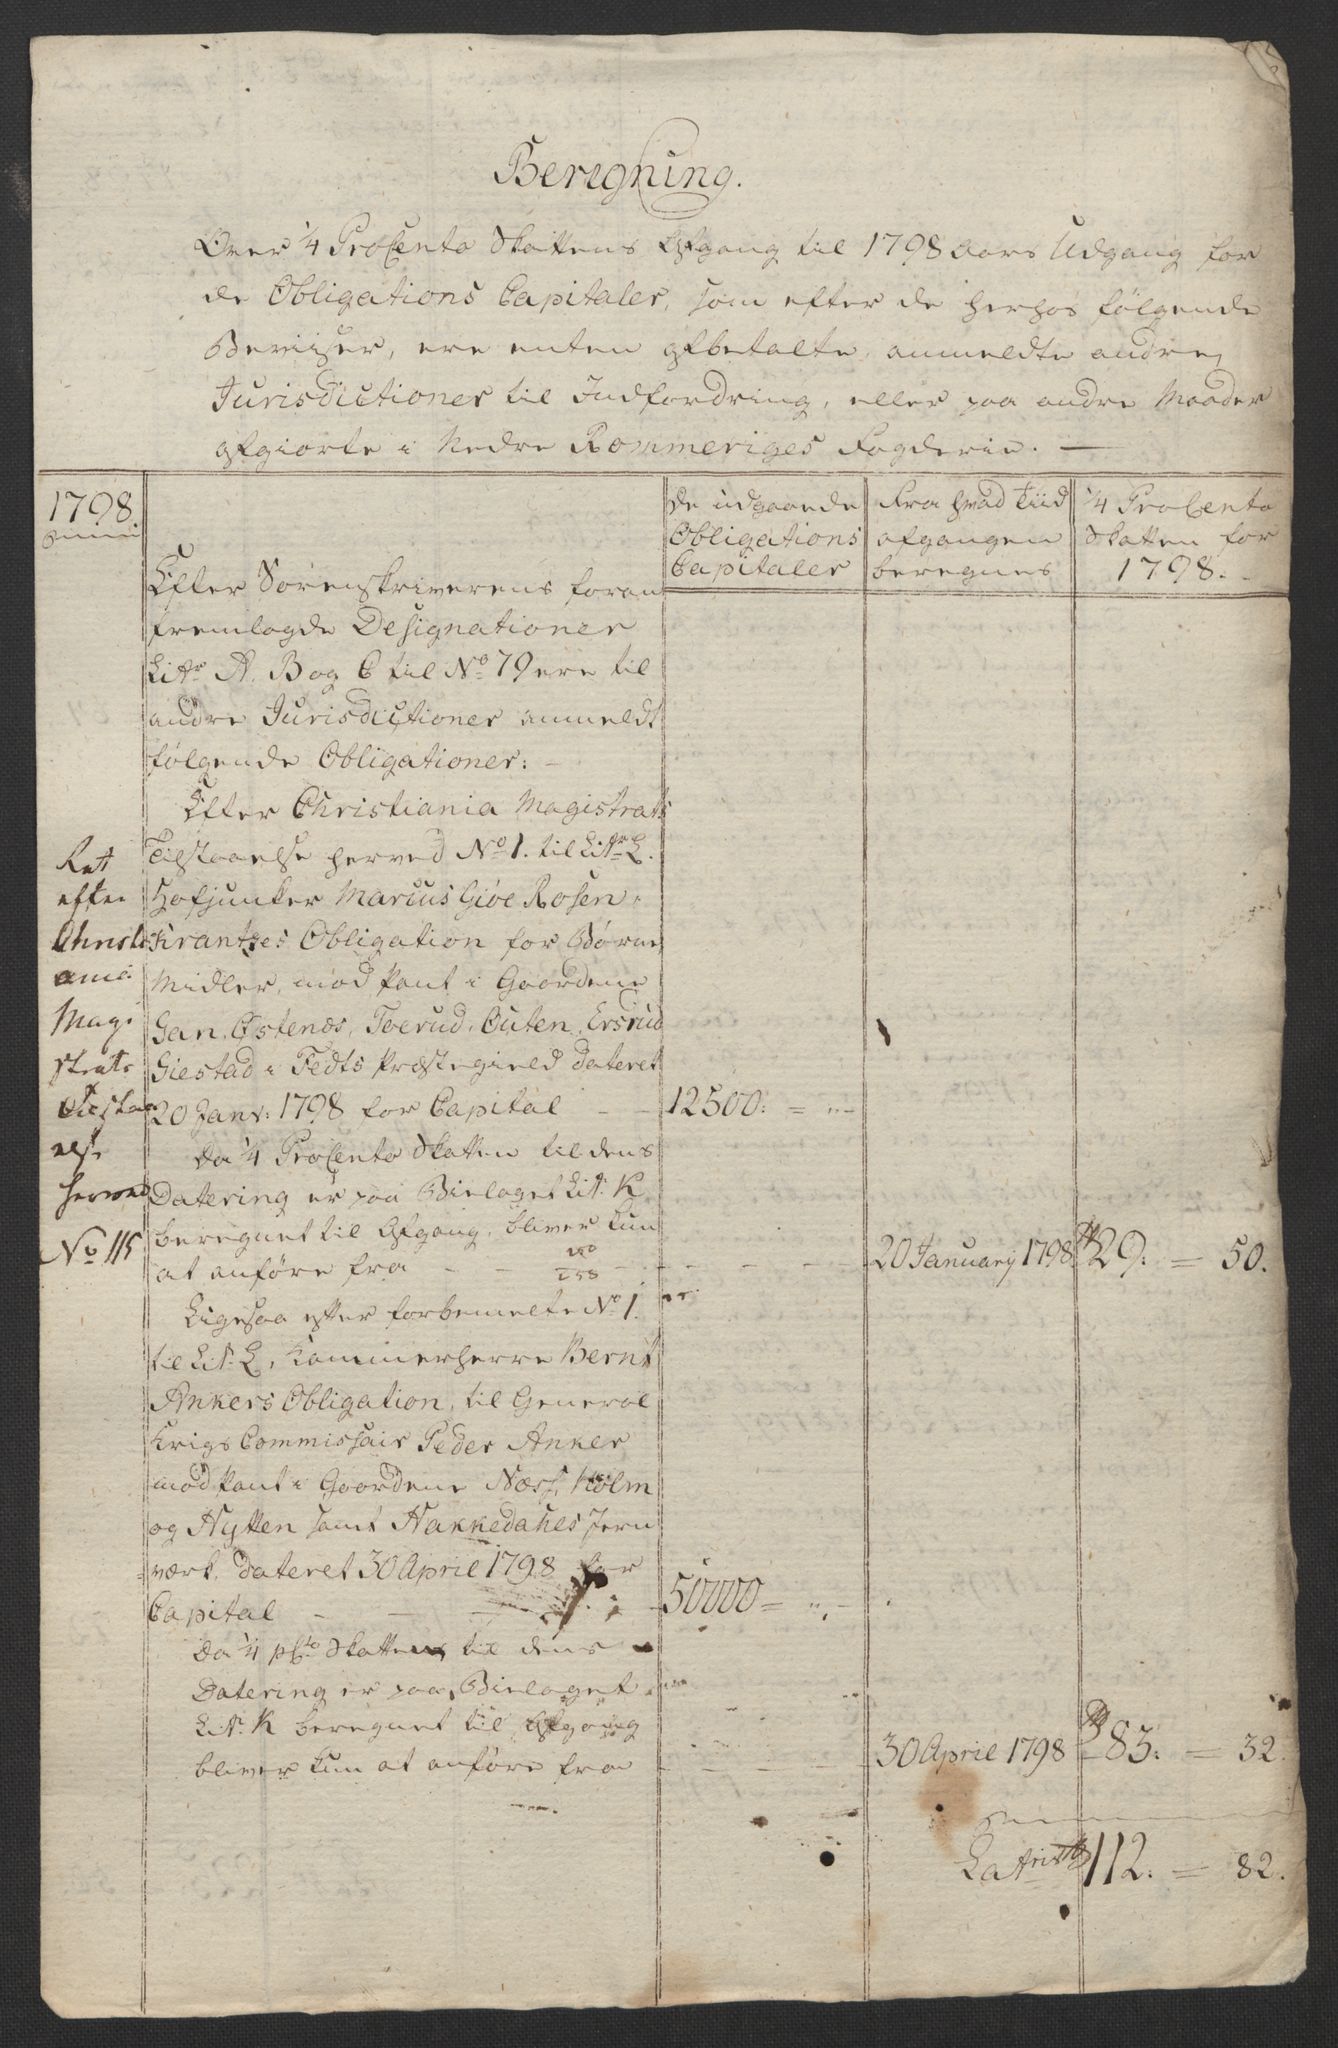 Beregning.
Over 1/4 ProCento Skattens Afgang til 1798 Aars Udgang for
de Obligations Capitaler, som efter de herhos følgende
Beviiser, ere enten afbetalte, anmeldte andre
Jurisdictioner til Indfordring, eller paa andre Maader
afgiorte i Nedre Rommeriges Fogderie. —
1798.
De udgaaende
Obligations
Capitaler
Fra hvad Tiid
afgangen
beregnes
1/4 ProCento
Skatten for
1798.
Efter Sorenskriverens foran
fremlagde Designationer
Littr A. B og C til No 79 ere til
andre Jurisdictioner anmeldt
følgende Obligationer:
Efter Christiania Magistrats
Tilstaaelse herved No 1. til Littr L.
Hofjunker Marcus Giöe Rosen-
Krantzes Obligation for Börne
Midler, mod Pant i Gaardene
Gan, Østenæs, Toerud, Outen, Ersrud
Giestad i Fedts Præstegield dateret
20 Janv: 1798 for Capital - - 12500: = „ -
Da 1/4 ProCento Skatten til dens
Datering er paa Bielaget Lit: K
beregnet til Afgang, bliver kun
at anføre fra - - - 20 January 1798 29. = 50.
Ret
efter
Christi
ania
Magi
strats
tilstaa
else
herved
No 115
Ligesaa efter forbemelte No 1.
til Lit: L, Kammerherre Bernt
Ankers Obligation, til General
Krigs Commissair Peder Anker
mod Pant i Gaardene Næss, Holm
og Hytten samt Hakkedahls Jern
værk, dateret 30 April 1798 for
Capital - - - 50000 = „ -
Da 1/4 pCto Skatten til dens
Datering er paa Bielaget
Lit: K beregnet til Afgang
bliver kun at anføre fra - - - 30 April 1798 83: = 32.
Latris 112. = 82.